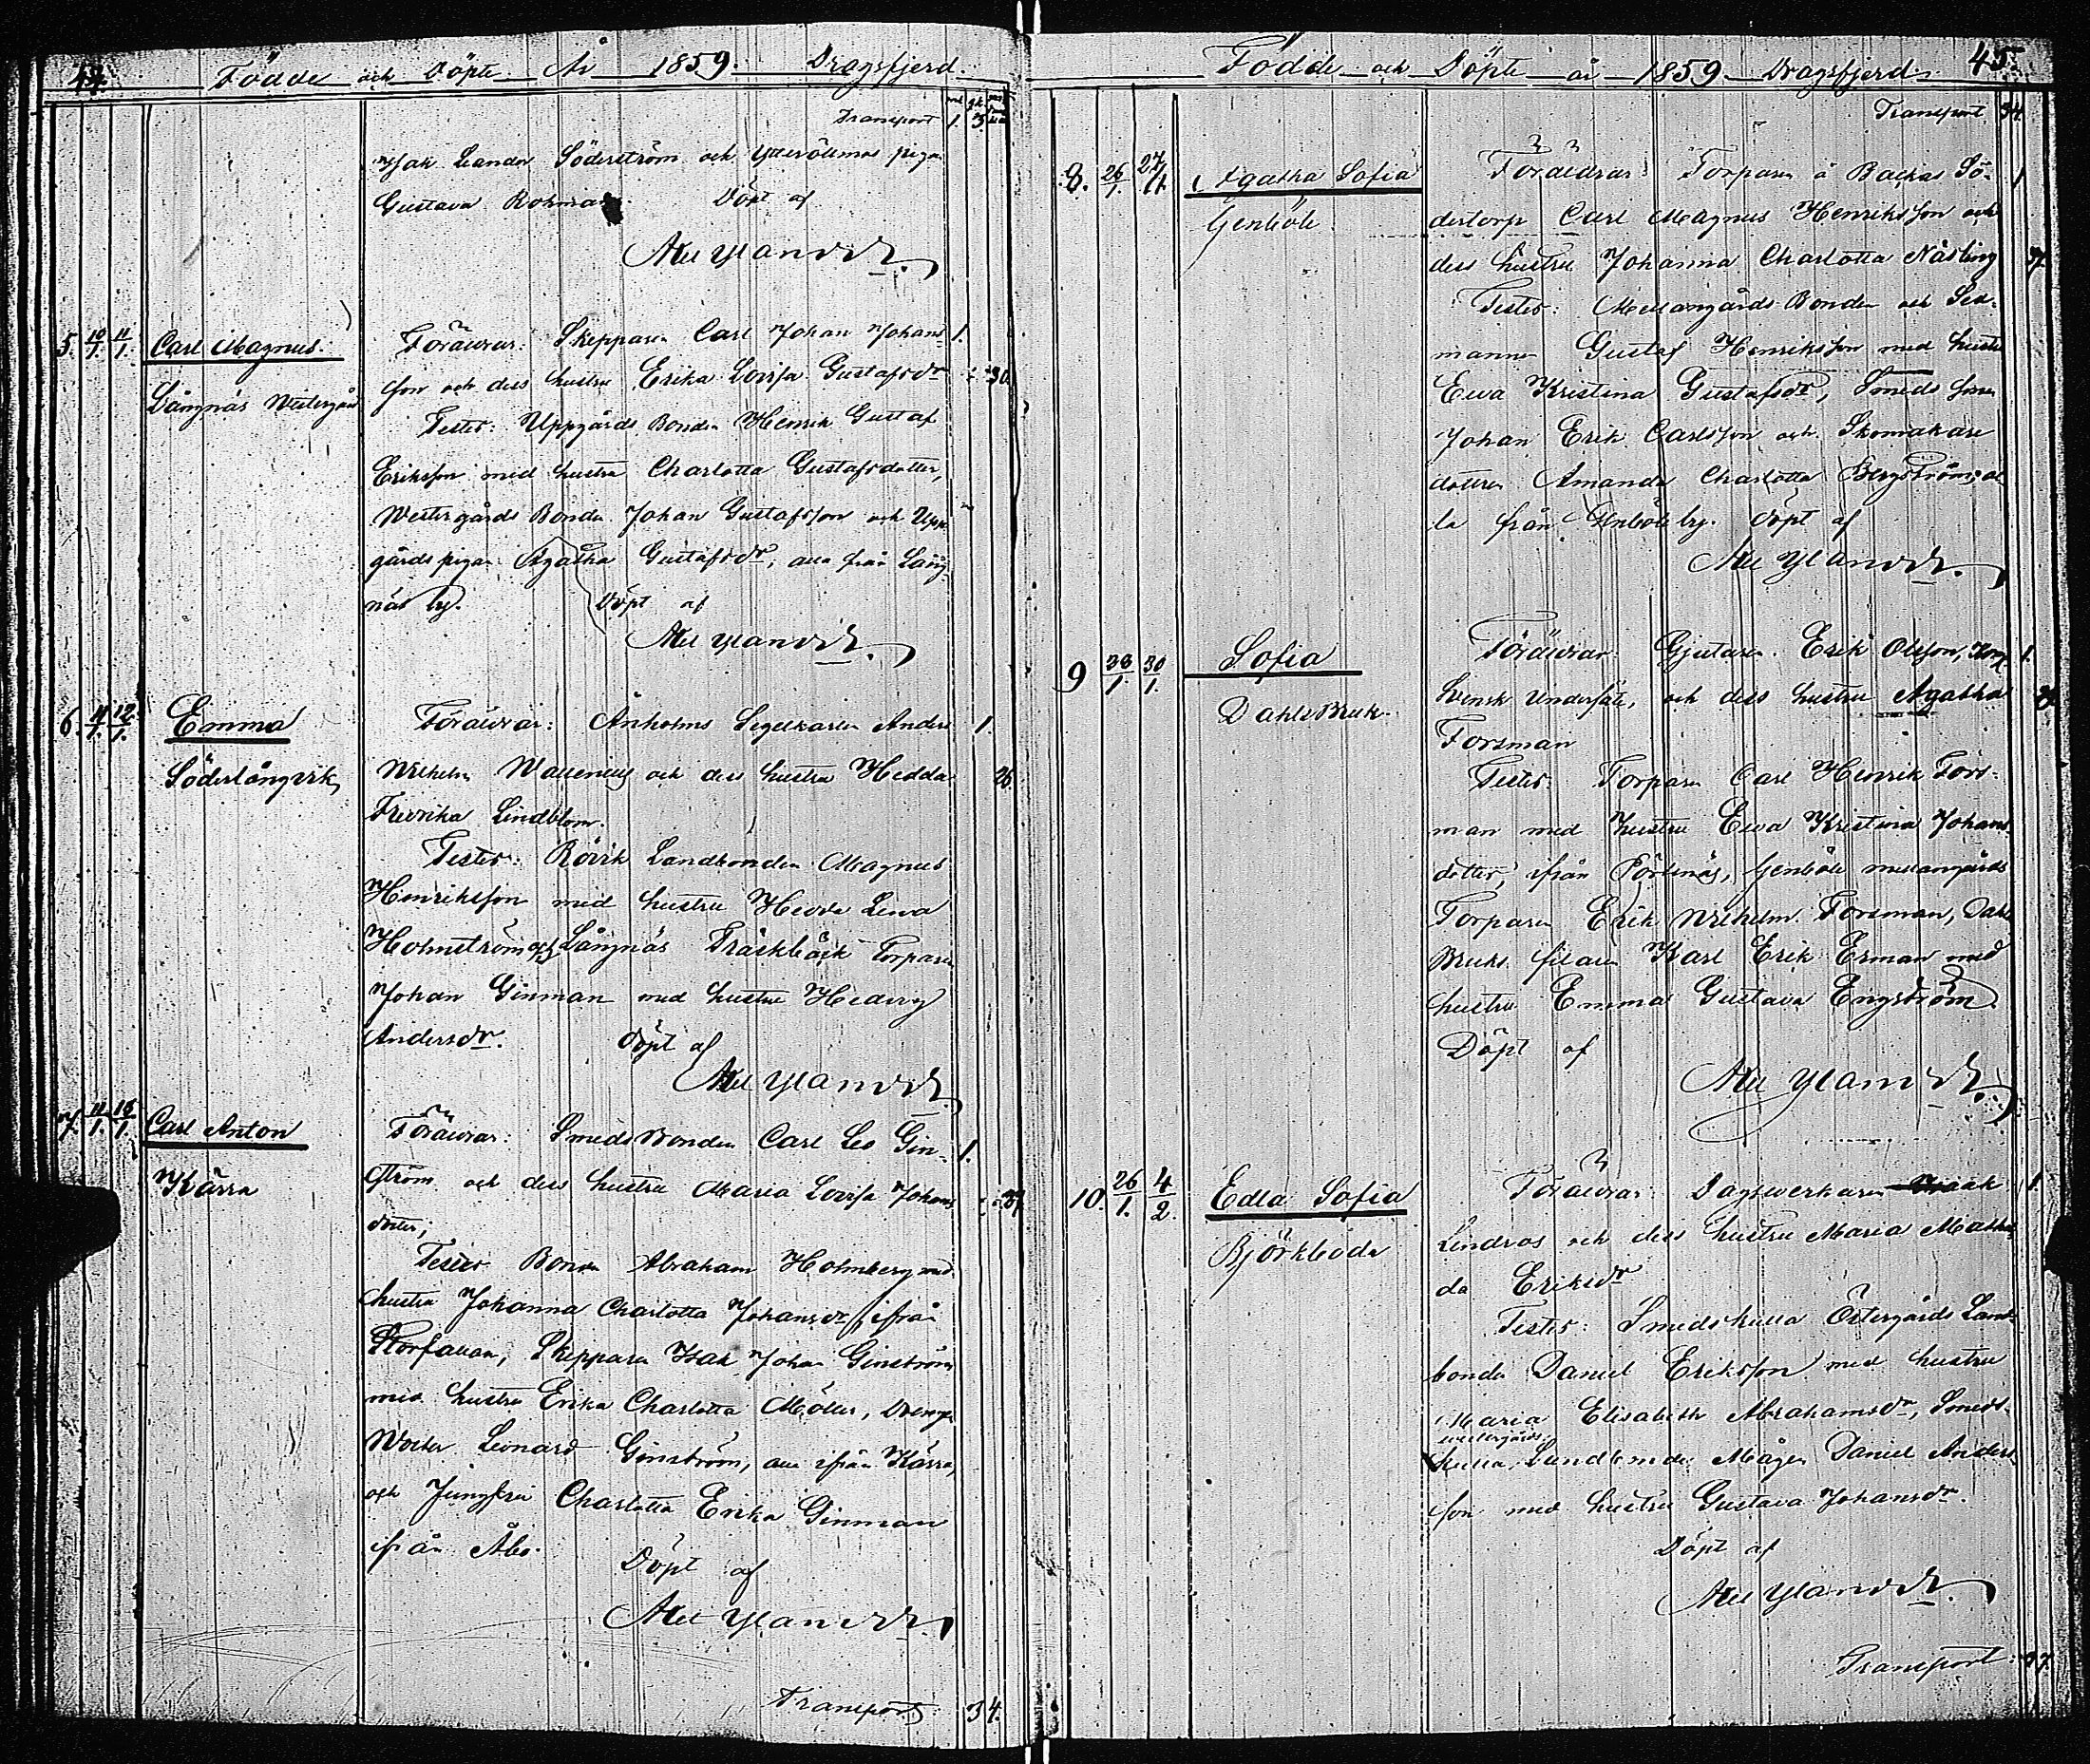 44. Födde och Döpte År 1859. Dragsfjerd.
Transport 1. 3.
Isak Leander Söderström och piga
Gustava Döpt af
Axel Ylander.
5. 10/1. 11/1. Carl Magnus. Föräldrar: Skepparen Carl Johan Johans- 1.
son och dess hustru Erika Lovisa Gustafsdr 30.
Långnäs Westergård
Testes: Uppgårds Bonden Henrik Gustaf
Eriksson med hustru Charlotta Gustafsdotter,
Westergårds Bonden Johan Gustafsson och Upp-
gårds pigan Agatha Gustafsdr, alla från Lång-
näs by. Döpt af
Axel Ylander.
6. 11/1. 12/1. Emma Föräldrar: Ånholms Segelkarlen Anders 1.
Söderlångvik Wilhelm Wallenius och dess hustru Hedda 26.
Fredrika Lindblom.
Testes: Rövik Landbonden Magnus
Henriksson med hustru Hedda Lena
Holmström och Långnäs Träskbäck Torparen
Johan Ginman med hustru Hedvig
Andersdr. Döpt af
Axel Ylander.
7. 11/1. 16/1. Carl Anton Föräldrar: Smeds Bonden Carl Leo Gin- 1.
Kärra ström och dess hustru Maria Lovisa Johans 37.
dotter;
Testes Bonden Abraham Holmberg med
hustru Johanna Charlotta Johansdr, ifrån
Skepparen Isak Johan Ginström
med hustru Erika Charlotta Möller, Drengen
Leonard Ginström, alla ifrån Kärra,
och Jungfru Charlotta Erika Ginman
ifrån Åbo. Döpt af
Axel Ylander.
Transport 3 4.
Födde och Döpte år 1859 Dragsfjerd. 45.
Transport 3 4.
8. 26/1. 27/1. Agatha Sofia Föräldrar: Torparen å Backas Sö- 1
Genböle. dertorp Carl Magnus Henriksson och
dess hustru Johanna Charlotta Näsling 37.
Testes: Mellangårds Bonden och Sex-
mannen Gustaf Henriksson med hustru
Ewa Kristina Gustafsdr, Smeds sonen
Johan Erik Carlsson och Skomakare
dottren Amanda Charlotta Bergström, al-
la från Genböle by. Döpt af
Axel Ylander.
9 28/1. 30/1. Sofia Föräldrar: Gjutaren Erik Olsson, Kongl 1.
Dahls Bruk. Svensk Undersåte, och dess hustru Agatha
Forsman
Testes: Torparen Carl Henrik Fors-
man med hustru Ewa Kristina Johans
dotter, ifrån Genböle mellangårds
Torparen Erik Wilhelm Forsman, Dals
Bruks filaren Karl Erik Erman med
hustru Emma Gustava Engström.
Döpt af
Axel Ylander.
10. 26/1. 4/2. Edla Sofia Föräldrar: Dagsverkaren Isaak 1.
Björkboda Lindroos och dess hustru Maria Mathil
da Eriksdr
Testes: Smedskulla Östergårds Land-
bonden Daniel Eriksson med hustru
Maria Elisabeth Abrahamsdr, Smeds-
westergårds
kulla Landbonde Mågen Daniel Anders
son med hustru Gustava Johansdr.
Döpt af
Axel Ylander.
Transport 3 7.